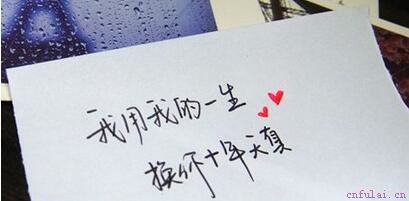 我用我的一生
换你十年天真
cnfulai.cn